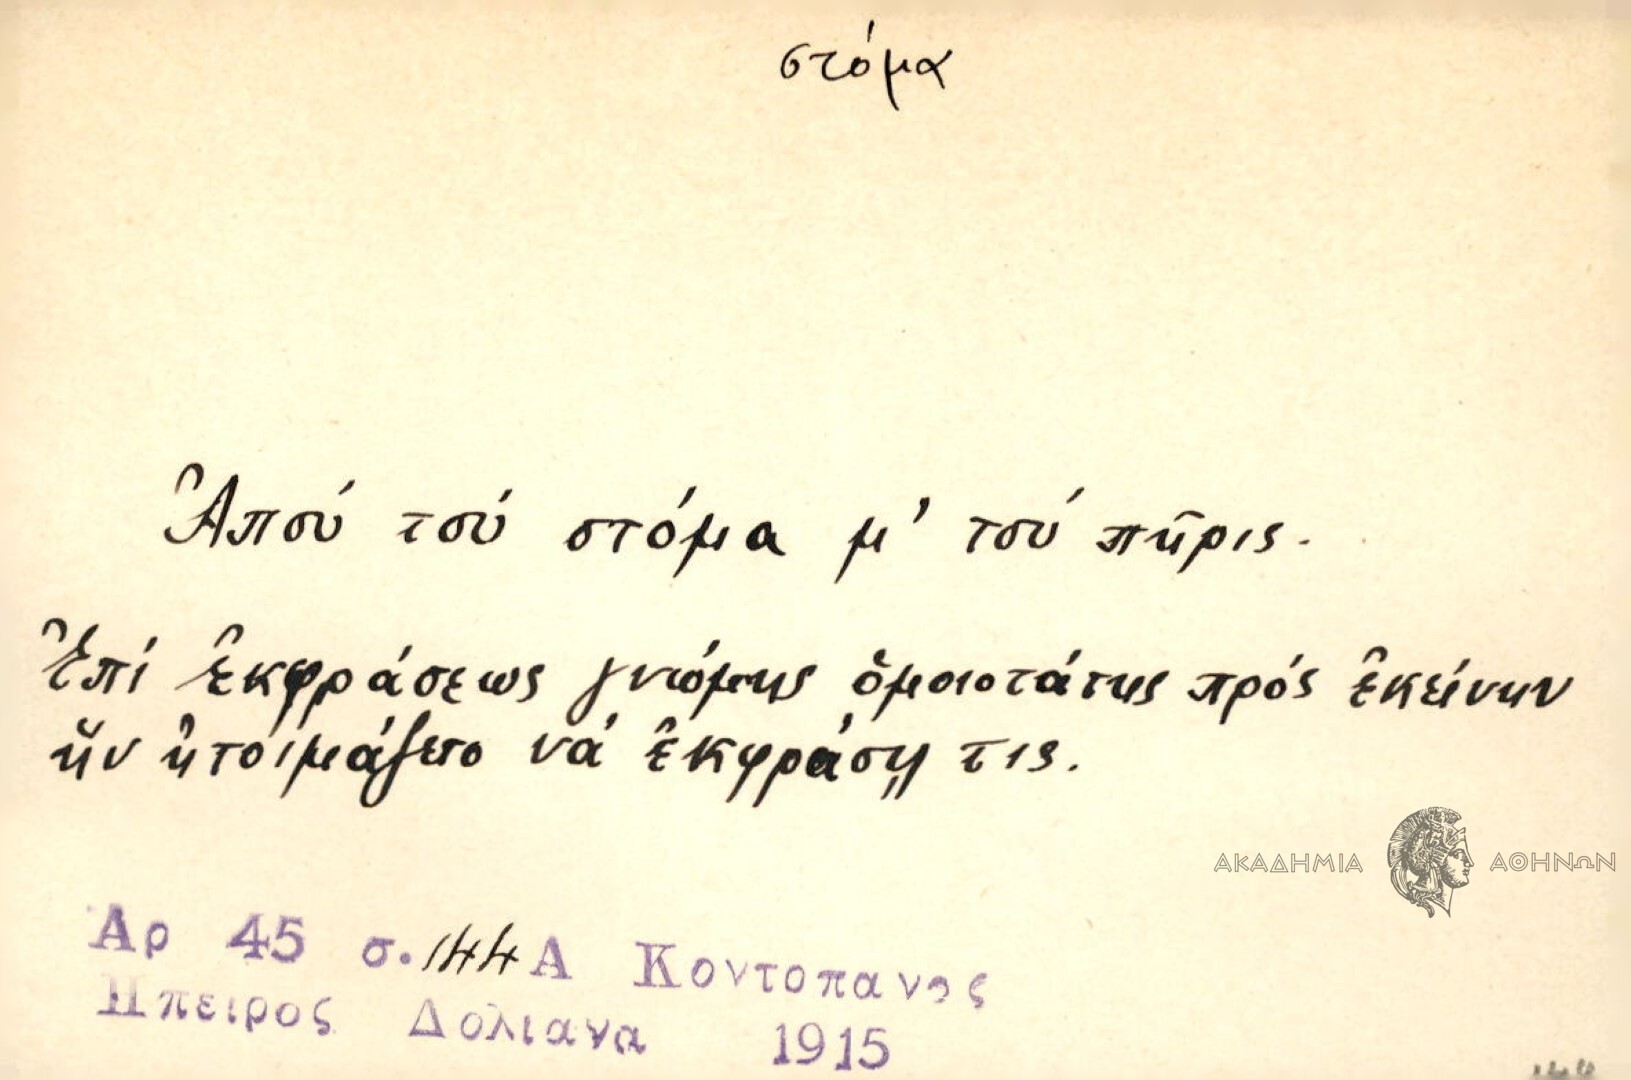 στόμα
Ἀπού τού στόμα μ' τού πῆρις.
Ἐπί ἐκφράσεως γνώμης ὁμοιοτάτης πρός ἐκείνην
ἥν ἡτοιμάζετο νά ἐκφράσῃ τις.
ΑΚΑΔΗΜΙΑ ΑΘΗΝΩΝ
Αρ 45 σ. 144 Α Κοντοπανος
Ηπειρος Δολιανα 1915